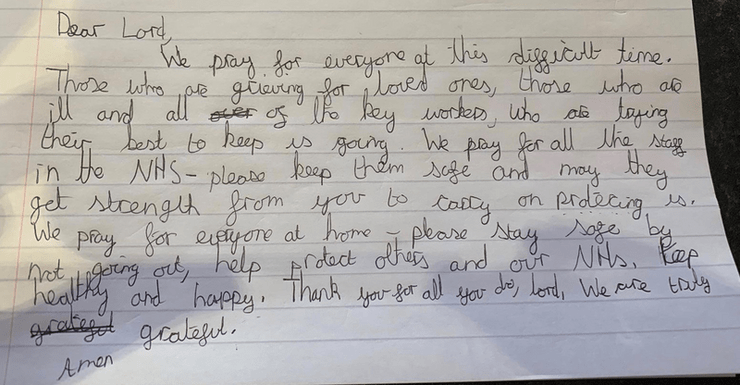 Dear Lord,
We pray for everyone at this difficult time.
Those who are grieving for loved ones, those who are
ill and all over of the key workers, who are trying
their best to keep us going. We pray for all the staff
in the NHS - please keep them safe and may they
get strength from you to carry on protecing us.
We pray for everyone at home - please stay safe by
not going out, help protect others and our NHS. Keep
healthy and happy. Thank you for all you do, lord, We are truly
grateful grateful.
Amen